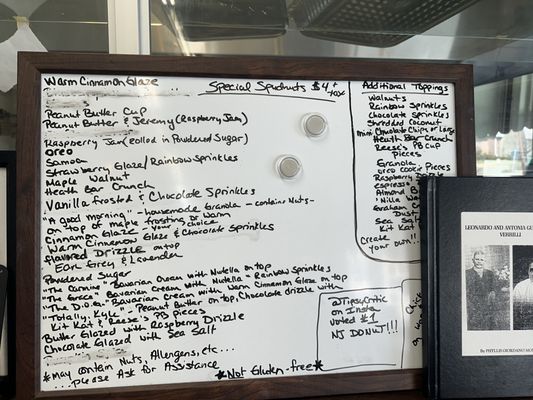 Warm Cinnamon Glaze
Special Spudnuts $4 + tax
Peanut Butter Cup
Peanut Butter & Jeremy (Raspberry Jam)
Raspberry Jam (rolled in Powdered Sugar)
Oreo
Samoa
Strawberry Glaze/Rainbow Sprinkles
Maple Walnut
Heath Bar Crunch
Vanilla Frosted & Chocolate Sprinkles
"A good morning" - housemade Granola - contains Nuts -
on top of maple frosting or warm
Cinnamon Glaze - your choice
Warm Cinnamon Glaze & Chocolate Sprinkles
Flavored Drizzle on top
Earl Grey & Lavender
Powdered Sugar
"The Carmine" Bavarian Cream with Nutella on top
"The Grace" Bavarian Cream with Nutella & Rainbow Sprinkles
"The Dior" Bavarian Cream with Warm Cinnamon Glaze on top
"Totally, Kyle" - Peanut Butter on top, Chocolate drizzle with
Kit Kat & Reese's PB pieces
Butter Glazed with Raspberry Drizzle
Chocolate Glazed with Sea Salt
*May contain Nuts, Allergens, etc...
...please Ask for Assistance
*Not Gluten-free*
Additional Toppings
Walnuts
Rainbow Sprinkles
Chocolate Sprinkles
Shredded Coconut
mini Chocolate Chips or Large
Heath Bar Crunch
Reese's PB Cup
Pieces
Granola
Oreo Cookie Pieces
Raspberry Drizzle
espresso
Almond B
'Nilla Wa
Graham Cr
Dust
Sea Salt
Kit Kat
Create
your own!!
@TipsyCritic
on Insta
voted #1
NJ DONUT!!!
LEONARDO AND ANTONIA GU
VERRILLI
By PHYLLIS GIORDANO MO